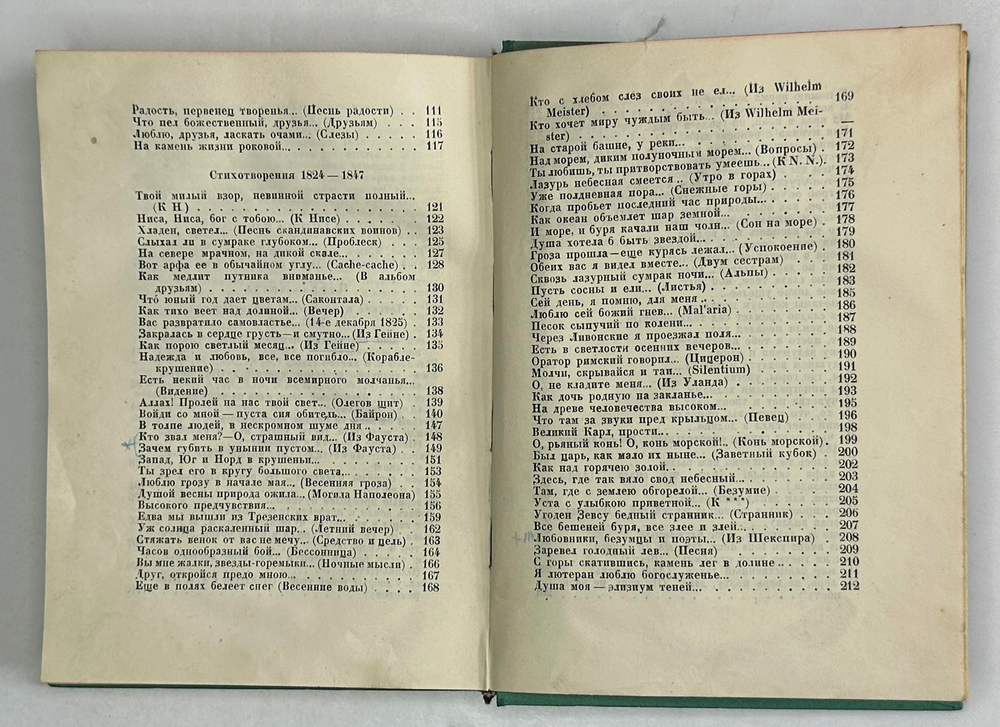 Радость, первенец творенья... (Песнь радости) . . 111
Что пел божественный, друзья... (Друзьям) . . . 115
Люблю, друзья, ласкать очами... (Слезы) . . . . 116
На камень жизни роковой... . . . . . . . . . 117
Стихотворения 1824 — 1847
Твой милый взор, невинной страсти полный...
(К Н) . . . . . . . . . . . . . . . 121
Ниса, Ниса, бог с тобою... (К Нисе) . . . . . 122
Хладен, светел... (Песнь скандинавских воинов) . . 123
Слыхал ли в сумраке глубоком... (Проблеск) . . . 125
На севере мрачном, на дикой скале... . . . . . 127
Вот арфа ее в обычайном углу... (Cache-cache) . . 128
Как медлит путника вниманье... (В альбом
друзьям) . . . . . . . . . . . . . 130
Что́ юный год дает цветам... (Саконтала) . . . . 131
Как тихо веет над долиной... (Вечер) . . . . . 132
Вас развратило самовластье... (14-е декабря 1825) . 133
Закралась в сердце грусть—и смутно... (Из Гейне) . 134
Как порою светлый месяц... (Из Гейне) . . . . . 135
Надежда и любовь, все, все погибло... (Корабле-
крушение) . . . . . . . . . . . . . 136
Есть некий час в ночи всемирного молчанья...
(Видение) . . . . . . . . . . . . . 138
Аллах! Пролей на нас твой свет... (Олегов щит) . 139
Войди со мной — пуста сия обитель... (Байрон) . . 140
В толпе людей, в нескромном шуме дня .. . . . . 147
Кто звал меня?—О, страшный вид... (Из Фауста) . 148
Зачем губить в унынии пустом... (Из Фауста) . . . 149
Запад, Юг и Норд в крушеньи... . . . . . . . 151
Ты зрел его в кругу большого света... . . . . . 153
Люблю грозу в начале мая... (Весенняя гроза) . . 154
Душой весны природа ожила... (Могила Наполеона) 155
Высокого предчувствия... . . . . . . . . . . 156
Едва мы вышли из Трезенских врат... . . . . . . 159
Уж солнца раскаленный шар... (Летний вечер) . . 162
Стяжать венок от вас не мечу... (Средство и цель) . 163
Часов однообразный бой... (Бессонница) . . . . . 164
Вы мне жалки, звезды-горемыки... (Ночные мысли) . 166
Друг, откройся предо мною... . . . . . . . . 167
Еще в полях белеет снег (Весенние воды) . . . . 168
Кто с хлебом слез своих не ел... (Из Wilhelm
Meister) . . . . . . . . . . . . . . 169
Кто хочет миру чуждым быть... (Из Wilhelm Mei-
ster) . . . . . . . . . . . . . . . —
На старой башне, у реки... . . . . . . . . . 171
Над морем, диким полуночным морем... (Вопросы) . 172
Ты любишь, ты притворствовать умеешь... (К N. N.). 173
Лазурь небесная смеется.. (Утро в горах) . . . . 174
Уже полдневная пора... (Снежные горы) . . . . . 175
Когда пробьет последний час природы... . . . . . 176
Как океан объемлет шар земной... . . . . . . . 177
И море, и буря качали наш челн... (Сон на море) . 178
Душа хотела б быть звездой... . . . . . . . . 179
Гроза прошла—еще курясь лежал... (Успокоение) . 180
Обеих вас я видел вместе... (Двум сестрам) . . . 181
Сквозь лазурный сумрак ночи... (Альпы) . . . . . 182
Пусть сосны и ели... (Листья) . . . . . . . . 183
Сей день, я помню, для меня .. . . . . . . . . 185
Люблю сей божий гнев... (Mal'aria) . . . . . . 186
Песок сыпучий по колени... . . . . . . . . . 187
Через Ливонские я проезжал поля... . . . . . . 188
Есть в светлости осенних вечеров... . . . . . . 189
Оратор римский говорил... (Цицерон) . . . . . . 190
Молчи, скрывайся и таи... (Silentium) . . . . . 191
О, не кладите меня... (Из Уланда) . . . . . . . 192
Как дочь родную на закланье... . . . . . . . . 193
На древе человечества высоком... . . . . . . . 195
Что там за звуки пред крыльцом... (Певец) . . . 196
Великий Карл, прости... . . . . . . . . . . 198
О, рьяный конь! О, конь морской!.. (Конь морской). 199
Был царь, как мало их ныне... (Заветный кубок) . 200
Как над горячею золой.. . . . . . . . . . . 202
Здесь, где так вяло свод небесный... . . . . . . 203
Там, где с землею обгорелой... (Безумие) . . . . 204
Уста с улыбкою приветной... (К * * *) . . . . . 205
Угоден Зевсу бедный странник... (Странник) . . . 206
Все бешеней буря, все злее и злей... . . . . . . 207
Любовники, безумцы и поэты... (Из Шекспира) . . 208
Заревел голодный лев... (Песня) . . . . . . . 209
С горы скатившись, камень лег в долине .. . . . . 210
Я лютеран люблю богослуженье... . . . . . . . 211
Душа моя — элизиум теней... . . . . . . . . . 212